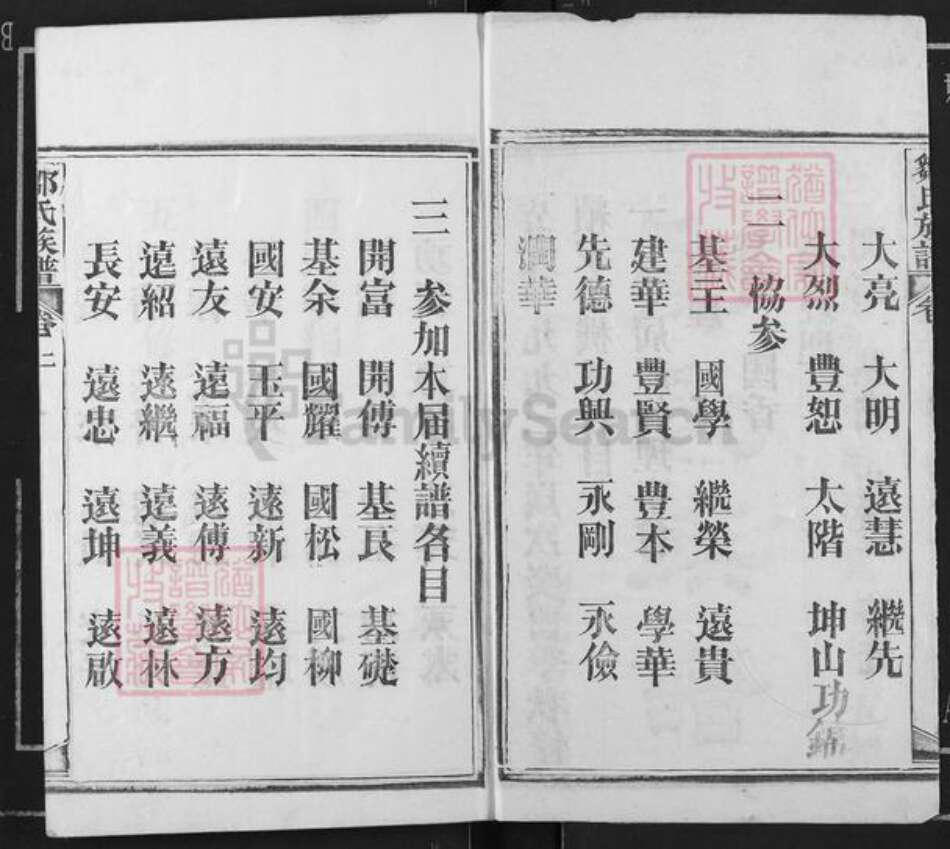 鄒氏族譜 卷
大亮 大明 遠慧 繼先
大烈 豐恕 太階 坤山 功
二 協參
基玉 國學 繼榮 遠貴
建華 豐賢 豐本 學華
先德 功興 永剛 永儉
華
三 參加本届續譜各目
開富 開傳 基良 基礎
基余 國耀 國松 國柳
國安 玉平 遠新 遠均
遠友 遠福 遠傅 遠方
遠紹 遠繼 遠義 遠林
長安 遠忠 遠坤 遠啟
鄒氏族譜 卷二
FamilySearch